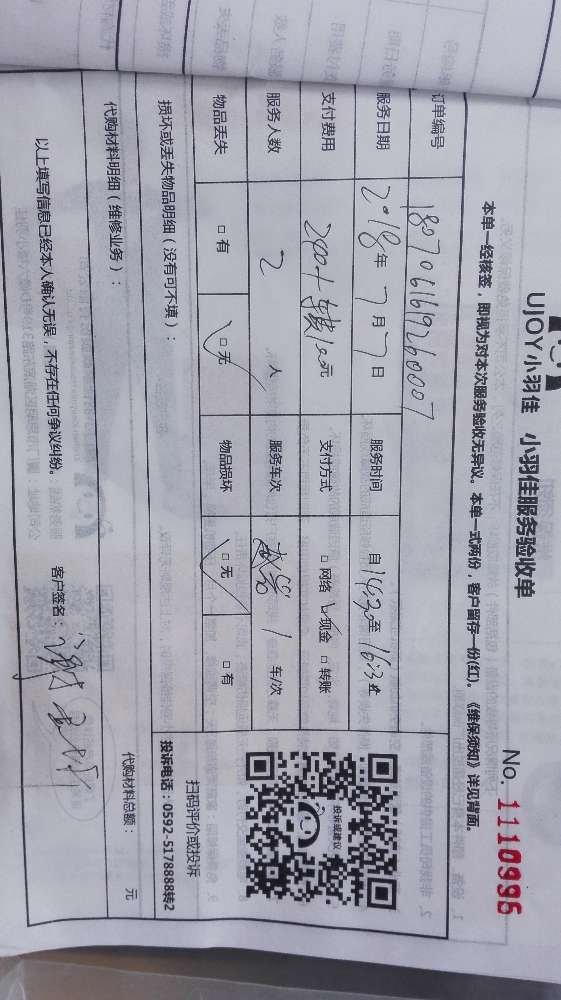 UJOY小羽佳 小羽佳服务验收单
No. 1110995
本单一经核签，即视为对本次服务验收无异议。本单一式两份，客户留存一份(红)。《维保须知》详见背面。
订单编号 1807061619260007
服务日期 2018年7月7日 服务时间 自14:30至16:30止
支付费用 280+ 元 支付方式 □网络 ☑现金 □转账
服务人数 2 人 服务车次 1 车/次
物品丢失 □有 ☑无 物品损坏 ☑无 □有
损坏或丢失物品明细（没有可不填）：
投诉或建议
扫码评价或投诉
投诉电话：0592-5178888转2
代购材料明细（维修业务）：
代购材料总额： 元
以上填写信息已经本人确认无误，不存在任何争议纠纷。 客户签名：